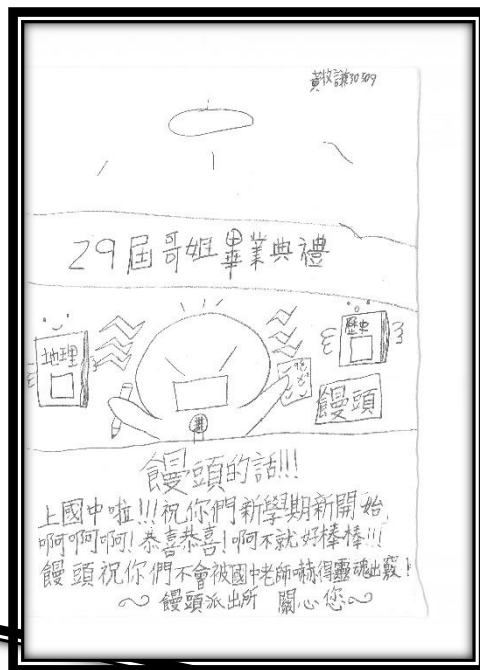 黃牧謙30509
29屆哥姐畢業典禮
地理
歷史
饅頭
饅頭的話!!!
上國中啦!!!祝你們新學期新開始
啊啊啊啊!恭喜恭喜!啊不就好棒棒!!!
饅頭祝你們不會被國中老師嚇得靈魂出竅!
～饅頭派出所 關心您～